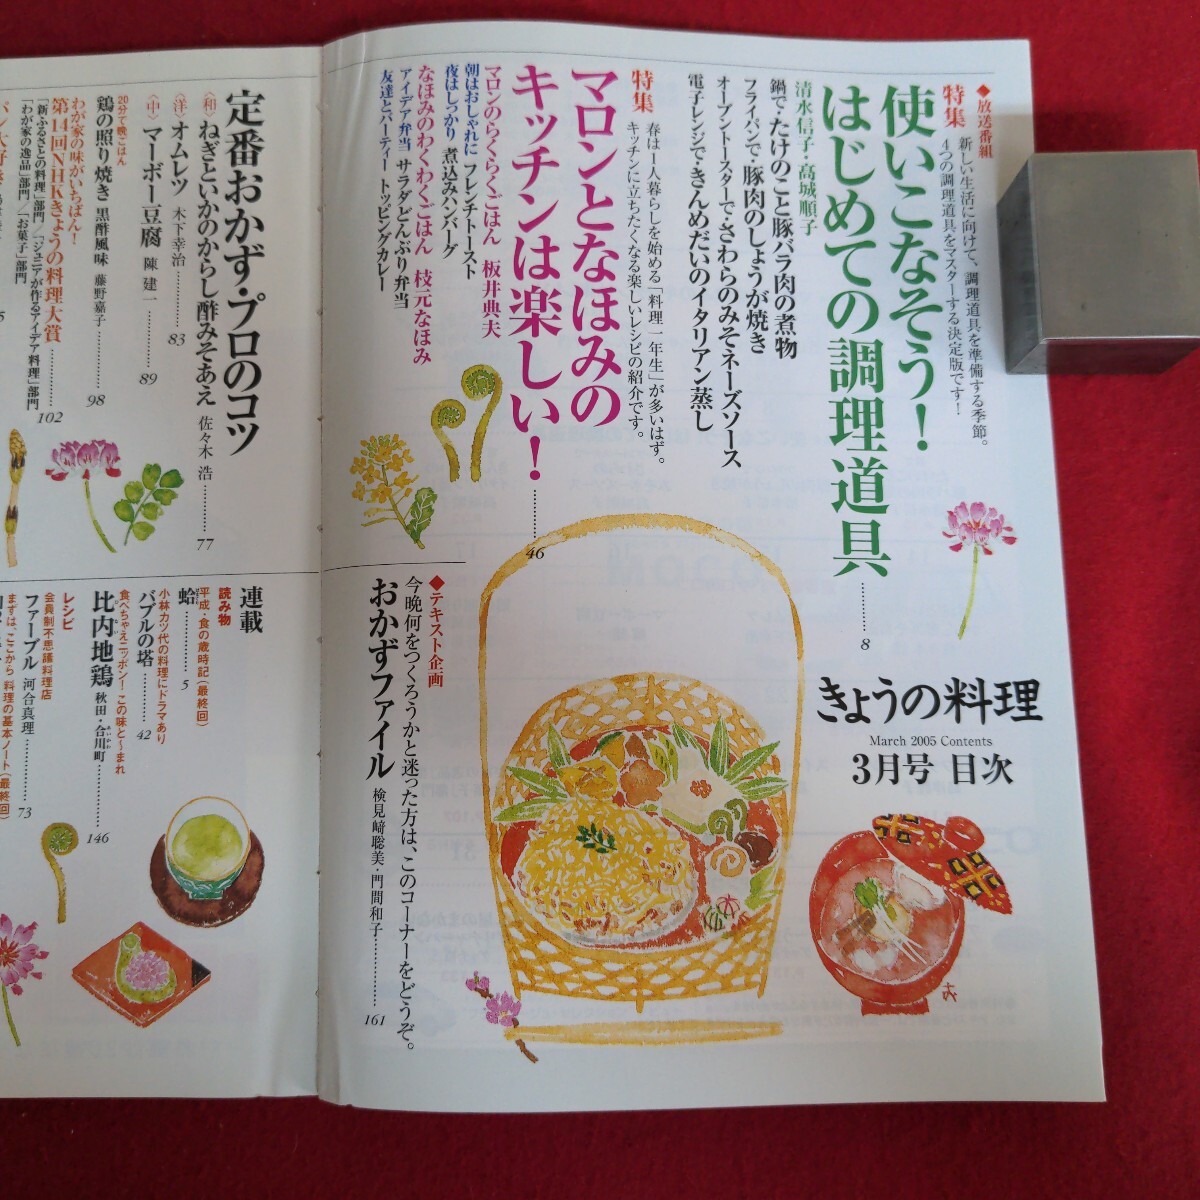 ◆放送番組
特集
新しい生活に向けて、調理道具を準備する季節。
4つの調理道具をマスターする決定版です!
使いこなそう!
はじめての調理道具
8
清水信子・高城順子
鍋で・たけのこと豚バラ肉の煮物
フライパンで・豚肉のしょうが焼き
オーブントースターで・さわらのみそネーズソース
電子レンジで・きんめだいのイタリアン蒸し
特集
春は1人暮らしを始める「料理一年生」が多いはず。
キッチンに立ちたくなる楽しいレシピの紹介です。
マロンとなほみの
キッチンは楽しい!
46
マロンのらくらくごはん 板井典夫
朝はおしゃれに フレンチトースト
夜はしっかり 煮込みハンバーグ
なほみのわくわくごはん 枝元なほみ
アイデア弁当 サラダどんぶり弁当
友達とパーティー トッピングカレー
きょうの料理
March 2005 Contents
3月号 目次
◆テキスト企画
今晩何をつくろうかと迷った方は、このコーナーをどうぞ。
おかずファイル 検見﨑聡美・門間和子
161
定番おかず・プロのコツ
〈和〉ねぎといかのからし酢みそあえ 佐々木 浩
77
〈洋〉オムレツ 木下幸治
83
〈中〉マーボー豆腐 陳 建一
89
20分で晩ごはん
鶏の照り焼き 黒酢風味 藤野嘉子
98
わが家の味がいちばん!
第14回NHKきょうの料理大賞
102
「新・ふるさとの料理」部門/「ジュニアが作るアイデア料理」部門
「わが家の逸品」部門/「お菓子」部門
連載
読み物
平成・食の歳時記(最終回)
蛤
5
小林カツ代の料理にドラマあり
バブルの塔
42
食べちゃえニッポン! この味と〜まれ
比内地鶏 秋田・合川町
146
レシピ
会員制不思議料理店
ファーブル 河合真理
73
まずは、ここから 料理の基本ノート(最終回)